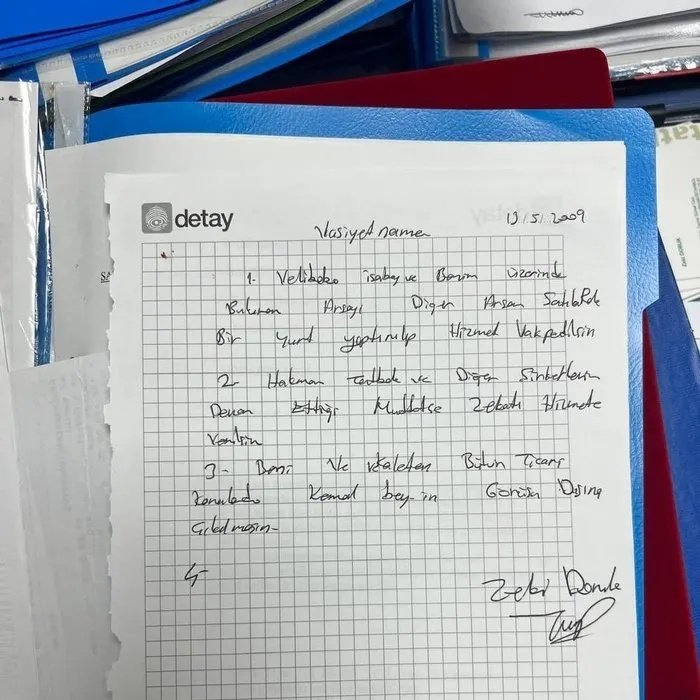 detay
Vasiyet name
13/5/2009
1- Velibaba isabey ve Benim üzerimde
Bulunan Arsayı Diğer Arsam Satılarak
Bir Yurt yaptırılıp Hizmet Vakfedilsin
2- Hakman ve Diğer Şirketlerin
Devam Ettiği Müddetçe Zekatı Hizmete
Verilsin
3- Beni Ve vekaleten Bütün Ticari
Konularda Kemal bey-in Görüşü Dışına
Çıkılmasın-
4-
Zeki